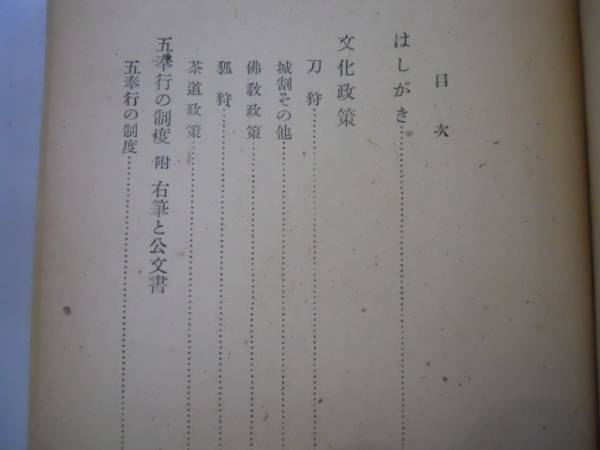 目次
はしがき……………………
文化政策
刀狩……………………
城割その他……………………
佛敎政策……………………
狐狩……………………
茶道政策……………………
五奉行の制度 附 右筆と公文書
五奉行の制度……………………